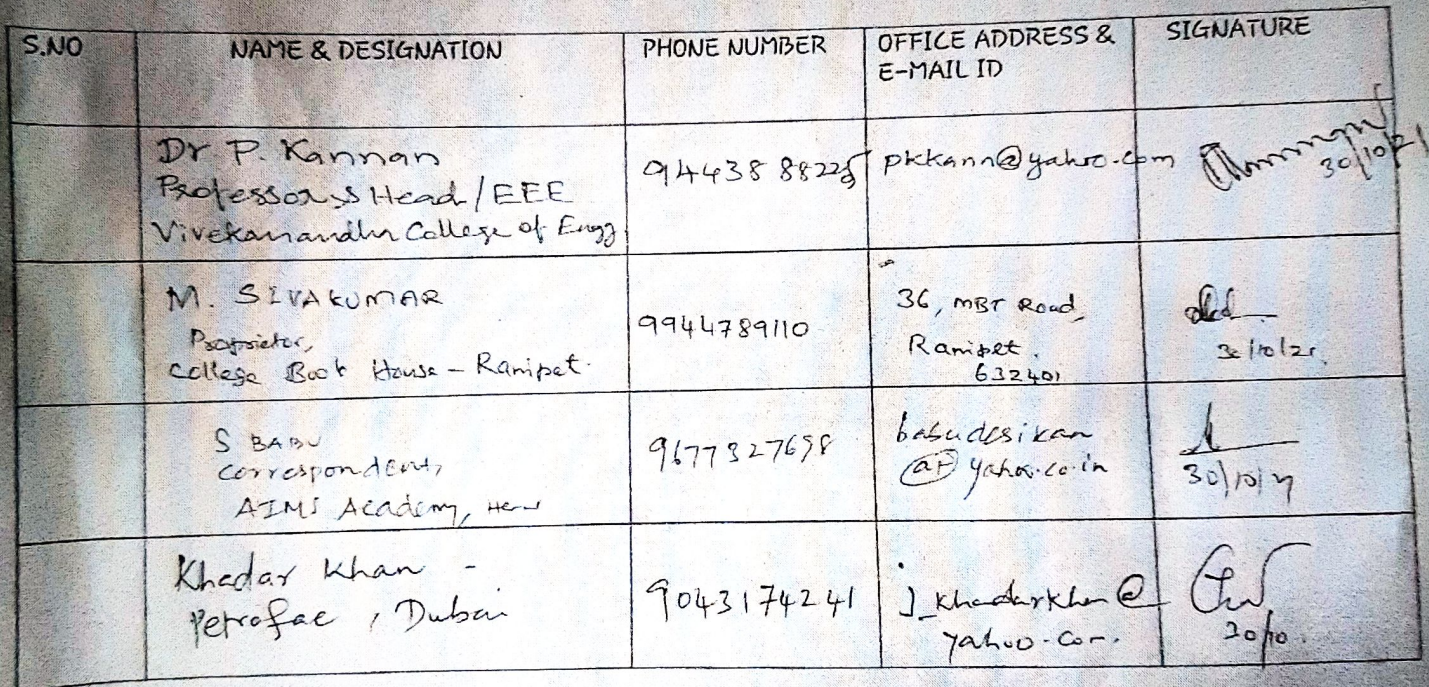 S.NO
NAME & DESIGNATION
PHONE NUMBER
OFFICE ADDRESS &
E-MAIL ID
SIGNATURE
Dr P. Kannan
Professor & Head / EEE
Vivekanandha College of Engg
pkkann@yahoo.com
30/10/21
M. SIVAKUMAR
Proprietor,
College Book House - Ranipet.
9944789110
36, MBT Road,
Ranipet.
632401
30/10/21.
S BABU
Correspondent,
AIMS Academy,
babudesikan
@ yahoo.co.in
30/10/21
Khadar Khan -
Petrofac, Dubai
9043174241
J_khadarkhan@
yahoo.com.